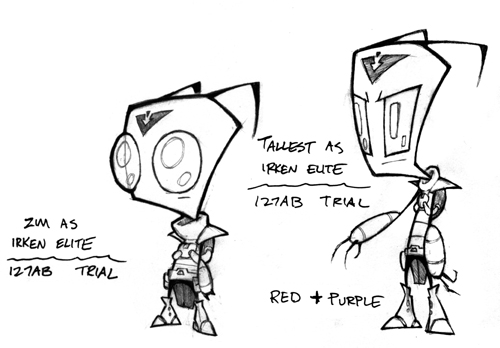 ZIM AS
IRKEN ELITE
127AB TRIAL
TALLEST AS
IRKEN ELITE
127AB TRIAL
RED + PURPLE